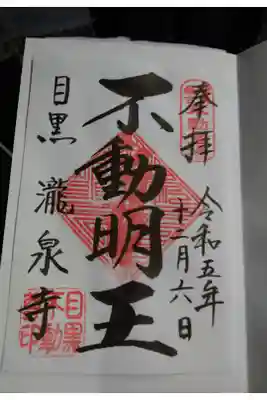 奉拝
令和五年
十二月六日
不動明王
目黒
瀧泉寺
目黒
不動
尊印